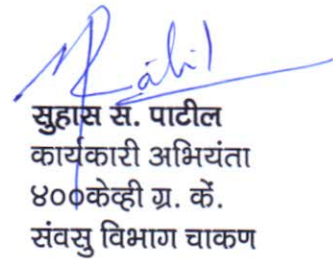 सुहास स. पाटील
कार्यकारी अभियंता
४००केव्ही ग्र. कें.
संवसु विभाग चाकण